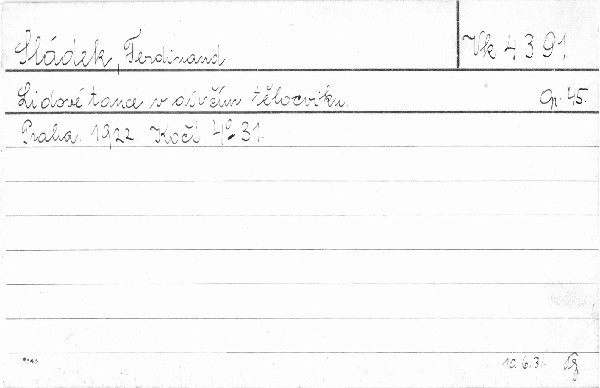 Sládek, Ferdinand Vk 4391
Lidové tance v dívčím tělocviku. Op. 45.
Praha. 1922 Kočí 4° 31.
10.6.31